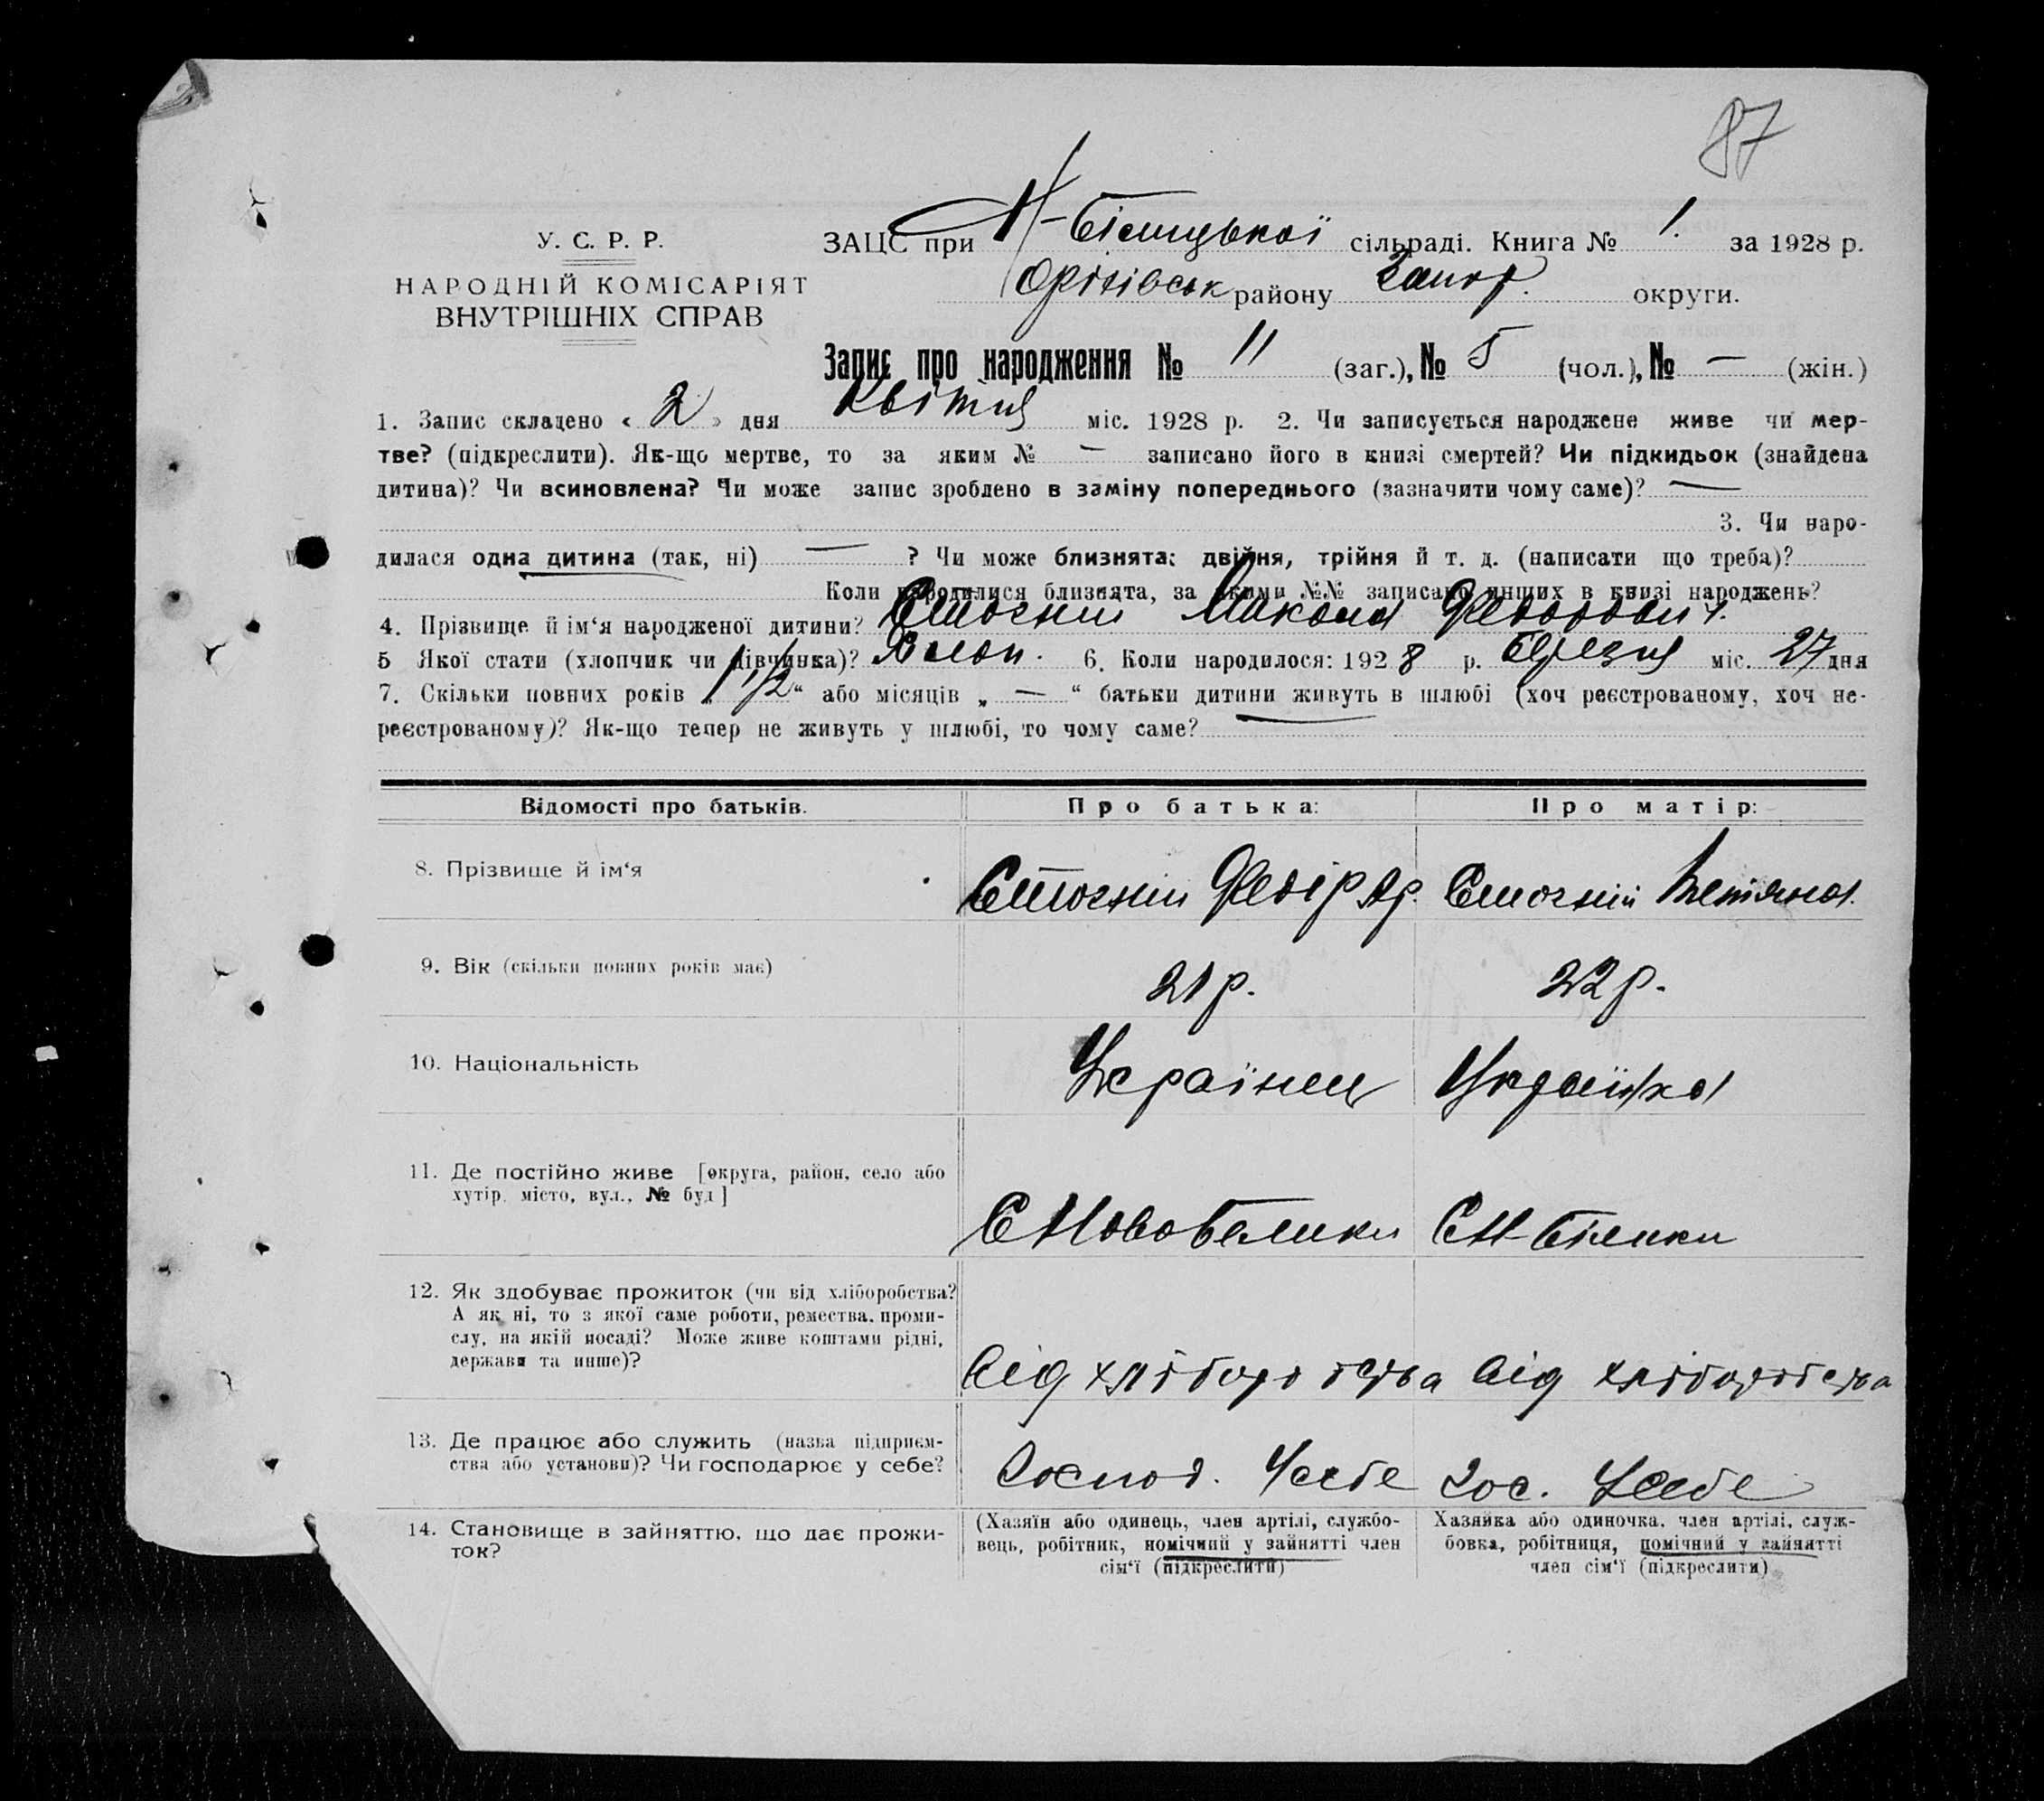 87
У. С. Р. Р.
НАРОДНІЙ КОМІСАРІЯТ
ВНУТРІШНІХ СПРАВ
ЗАЦС при Н-Білицької сільраді. Книга № 1. за 1928 р.
Оріхівськ району Запор. округи.
Запис про народження № 11 (заг.), № 5 (чол.), № — (жін.)
1. Запис складено « 2 » дня Квітня міс. 1928 р. 2. Чи записується народжене живе чи мер-
тве? (підкреслити). Як-що мертве, то за яким № — записано його в книзі смертей? Чи підкидьок (знайдена
дитина)? Чи всиновлена? Чи може запис зроблено в заміну попереднього (зазначити чому саме)? —
3. Чи наро-
дилася одна дитина (так, ні) — ? Чи може близнята: двійня, трійня й т. д. (написати що треба)?
Коли народилися близнята, за якими №№ записано инших в книзі народжень?
4. Прізвище й ім‘я народженої дитини? Стогній Микола Федорович.
5 Якої стати (хлопчик чи дівчинка)? Хлоп. 6. Коли народилося: 1928 р. Березня міс. 27 дня
7. Скільки повних років „ 1 1/2 “ або місяців „ — “ батьки дитини живуть в шлюбі (хоч реєстрованому, хоч не-
реєстрованому)? Як-що тепер не живуть у шлюбі, то чому саме? —
Відомості про батьків. Про батька: Про матір:
8. Прізвище й ім‘я Стогній Федір Стогній Тетяна.
9. Вік (скільки повних років має) 21 р. 22 р.
10. Національність Українец Українка
11. Де постійно живе [округа, район, село або
хутір, місто, вул., № буд ] С Новобелики С Н-Білики
12. Як здобуває прожиток (чи від хліборобства?
А як ні, то з якої саме роботи, ремества, проми-
слу, на якій посаді? Може живе коштами рідні,
держави та инше)? Від хліборобства Від хліборобства
13. Де працює або служить (назва підприєм-
ства або установи)? Чи господарює у себе? Господ. Усебе Гос. Усебе
14. Становище в зайняттю, що дає прожи-
ток?
(Хазяїн або одинець, член артілі, службо-
вець, робітник, помічний у зайнятті член
сім‘ї (підкреслити)
Хазяйка або одиночка, член артілі, служ-
бовка, робітниця, помічний у зайнятті
член сім‘ї (підкреслити)